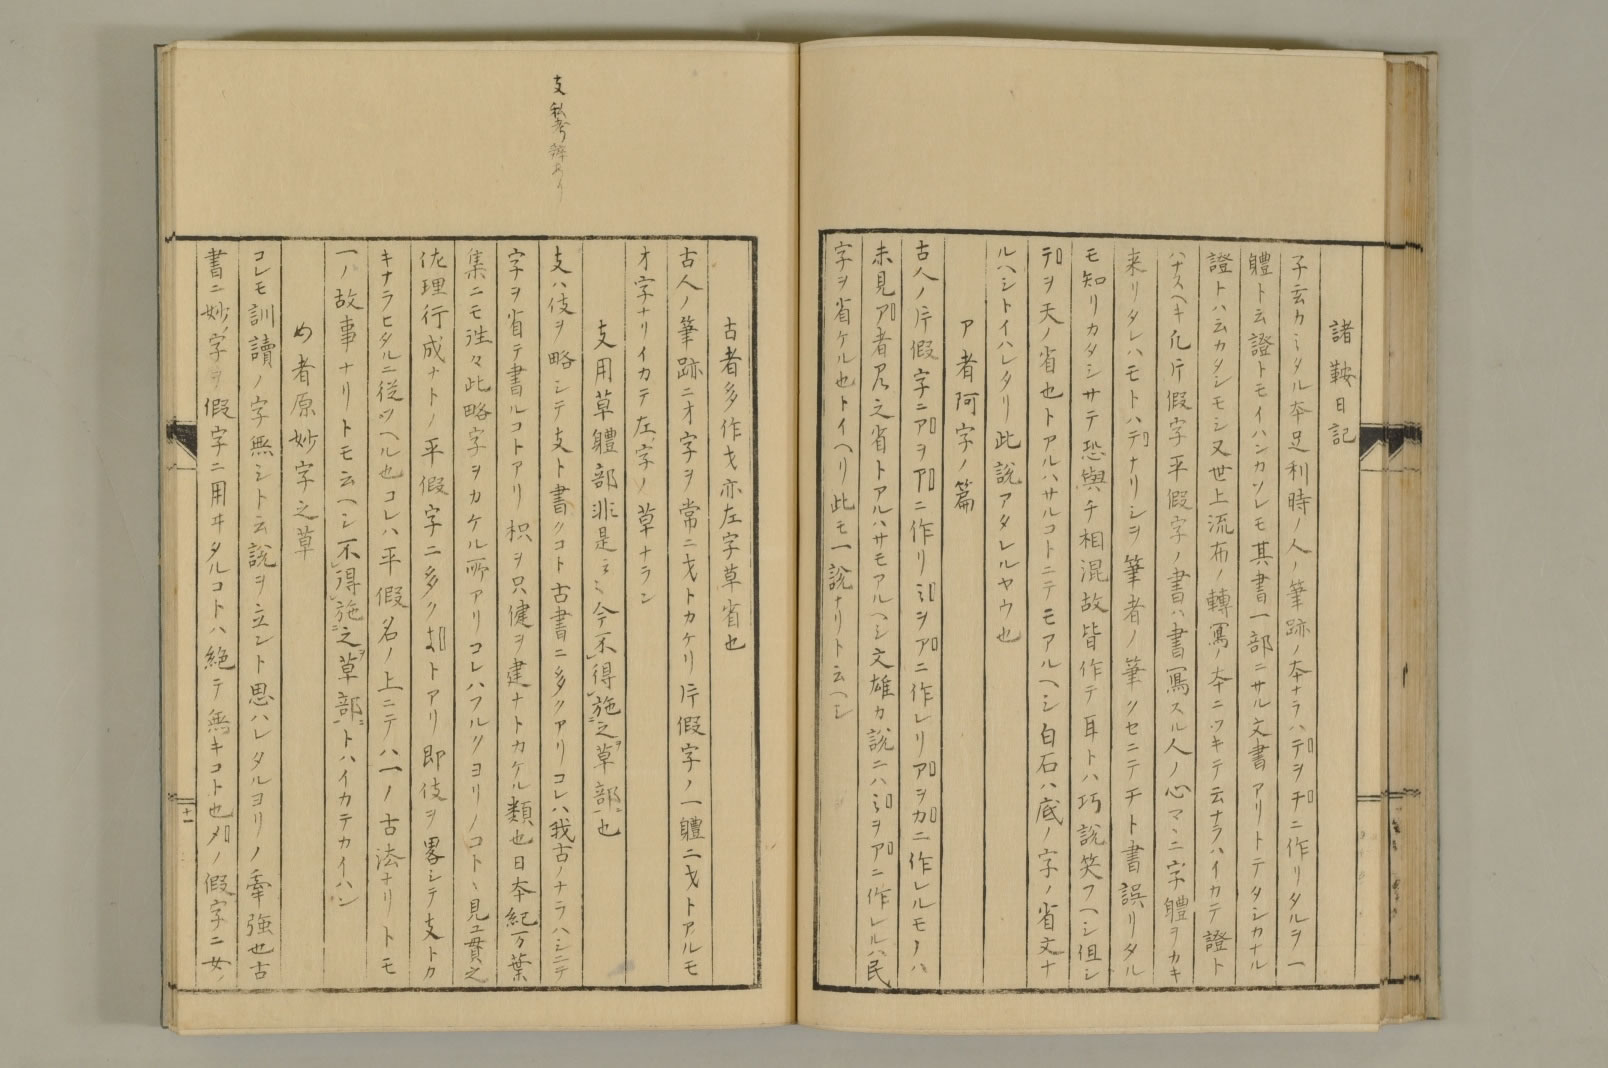 諸鞍日記
子玄カシミタル本足利時ノ人ノ筆跡ノ本ナラハテヲチニ作リタルヲ一
體ト云證トモイハンカソレモ其書一部ニサル文書アリトテタシカナル
證トハ云カタシモシ又世上流布ノ轉寫ノ本ニツキテ云ナラハイカテ證ト
ハナスヘキ凡片假字平假字ノ書ハ書寫スル人ノ心マヽニ字體ヲカキ
来リタレハモトハテナリシヲ筆者ノ筆クセニテチト書誤リタル
モ知リカタシサテ恐與チ相混故皆作テ耳トハ巧說笑フヘシ但シ
テヲ天ノ省也トアルハサルコトニテモアルヘシ白石ハ底ノ字ノ省文ナ
ルヘシトイハレタリ此說アタレルヤウ也
ア者阿字ノ篇
古人ノ片假字ニアヲアニ作リミヲアニ作レリアヲカニ作レルモノハ
未見ア者尸之省トアルハサモアルヘシ文雄カ說ニハミヲアニ作レルハ民
字ヲ省ケル也トイヘリ此モ一說ナリト云ヘシ
支 私考辨あり
古者多作𛀁亦左字草省也
古人ノ筆跡ニオ字ヲ常ニ𛀁トカケリ片假字ノ一體ニ𛀁トアルモ
オ字ナリイカテ左字ノ草ナラン
支用草體部非是云々今不得施之草部也
支ハ伎ヲ略シテ支ト書クコト古書ニ多クアリコレハ我古ノナラハシニテ
字ヲ省テ書ルコトアリ枳ヲ只健ヲ建ナトカケル類也日本紀万葉
集ニモ往々此略字ヲカケル所アリコレハフルクヨリノコトヽ見ユ貫之
佐理行成ナトノ平假字ニ多クおトアリ即伎ヲ畧シテ支トカ
キナラヒタルニ従ツヘル也コレハ平假名ノ上ニテハ一ノ古法ナリトモ
一ノ故事ナリトモ云ヘシ不得施之草部トハイカテカイハン
め者原妙字之草
コレモ訓讀ノ字無シト云說ヲ立ント思ハレタルヨリノ牽強也古
書ニ妙ノ字ヲ假字ニ用ヰタルコトハ絶テ無キコト也メノ假字ニ女ノ
十一